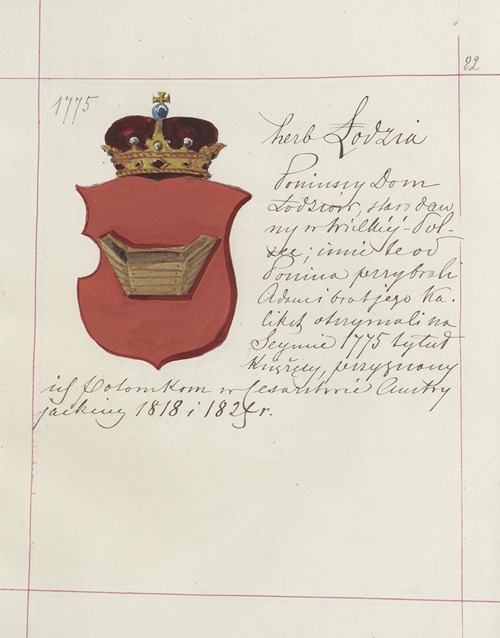 22
1775
herb Łodzia
Poninscy Dom
Łodziów, starodaw
ny w Wielkiej-Pol-
sce; imie te od
Ponina przybrali
Adam i brat jego Ka.
likst otrzymali na
Seymie 1775 tytuł
Książęcy, przyznany
ich Potomkom w Cesarstwie Austry
jackiey 1818 i 182 r.